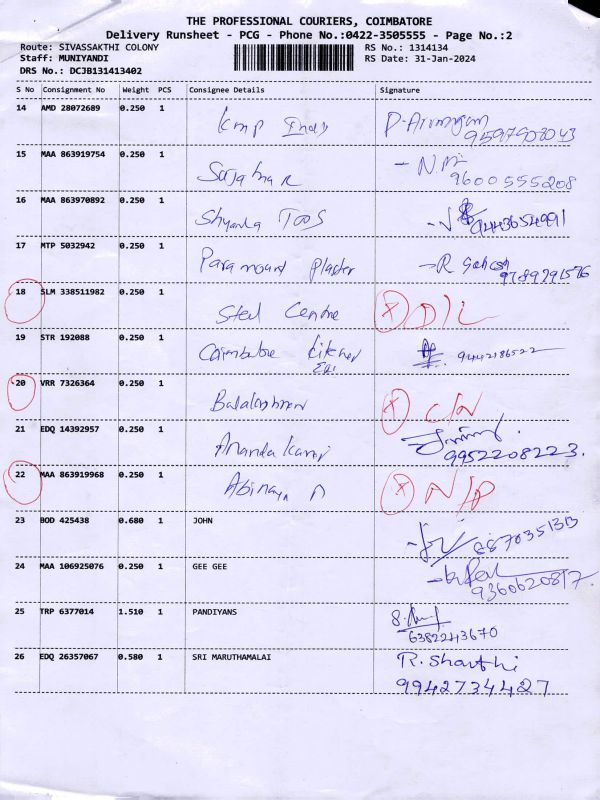 THE PROFESSIONAL COURIERS, COIMBATORE
Delivery Runsheet - PCG - Phone No.:0422-3505555 - Page No.:2
Route: SIVASSAKTHI COLONY RS No.: 1314134
Staff: MUNIYANDI RS Date: 31-Jan-2024
DRS No.: DCJB131413402
S No Consignment No Weight PCS Consignee Details Signature
14 AMD 28072689 0.250 1 kmp
15 MAA 863919754 0.250 1
9600555208
16 MAA 863970892 0.250 1
9443654991
17 MTP 5032942 0.250 1 Paramount Plaster R Ganesh
9789291576
18 SLM 338511982 0.250 1 Steel Centre X D/L
19 STR 192088 0.250 1 Coimbatore Kitchen
9442186522
20 VRR 7326364 0.250 1 X C/N
21 EDQ 14392957 0.250 1
9952208223.
22 MAA 863919968 0.250 1 Abinaya X N/P
23 BOD 425438 0.680 1 JOHN
24 MAA 106925076 0.250 1 GEE GEE
9360620817
25 TRP 6377014 1.510 1 PANDIYANS
6382243670
26 EDQ 26357067 0.580 1 SRI MARUTHAMALAI R. Sharthi
9942734427